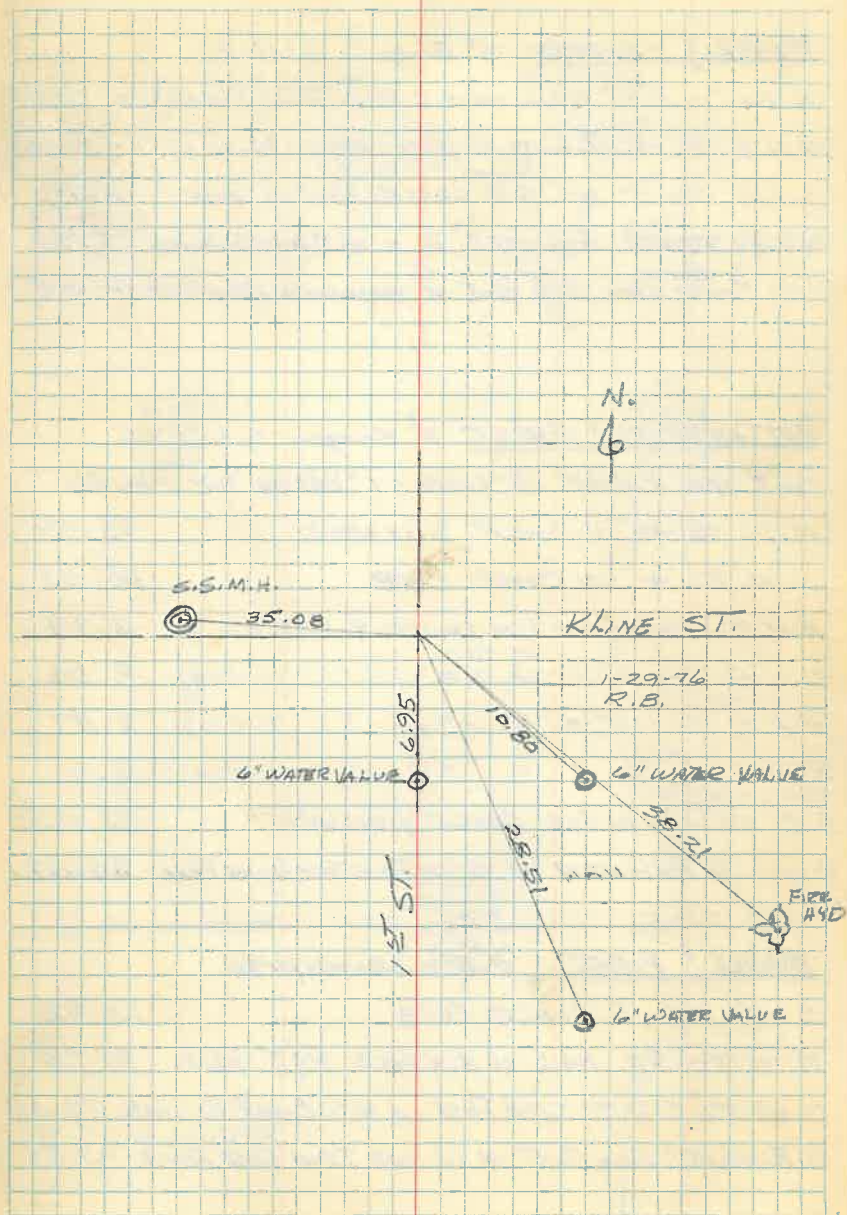 N.
S.S.M.H.
35.08
KLINE ST.
1-29-76
R.B.
6.95
10.80
6" WATER VALUE
6" WATER VALUE
38.21
28.51
1ST ST.
FIRE
HYD
6" WATER VALUE